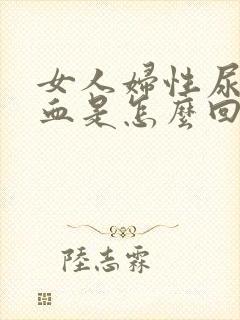 女人婦性尿
血是怎麼回
陸志霖